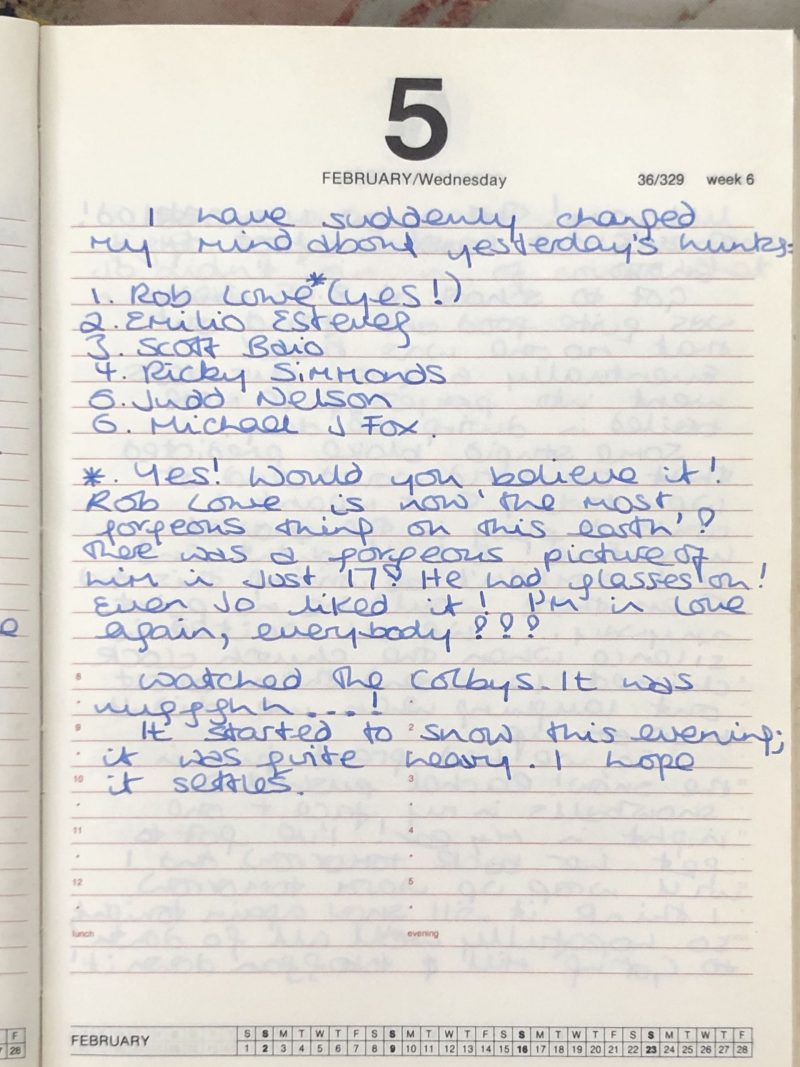 5
FEBRUARY/Wednesday 36/329 week 6
I have suddenly changed
my mind about yesterday's hunks:
1. Rob Lowe* (yes!)
2. Emilio Estevez
3. Scott Baio
4. Ricky Simmonds
5. Judd Nelson
6. Michael J Fox.
*. Yes! Would you believe it!
Rob Lowe is now 'the most
gorgeous thing on this earth'?
there was a gorgeous picture of
him i Just 17? He had glasses on!
Even Jo liked it! I'm in love
again, everybody ???
8 watched the Colbys. It was
uugghh...!
9 It started to 2 snow this evening;
it was quite heavy. I hope
10 it settles. 3
11 4
12 5
lunch evening
FEBRUARY
S S M T W T F S S M T W T F S S M T W T F S S M T W T F
1 2 3 4 5 6 7 8 9 10 11 12 13 14 15 16 17 18 19 20 21 22 23 24 25 26 27 28
e
F
28